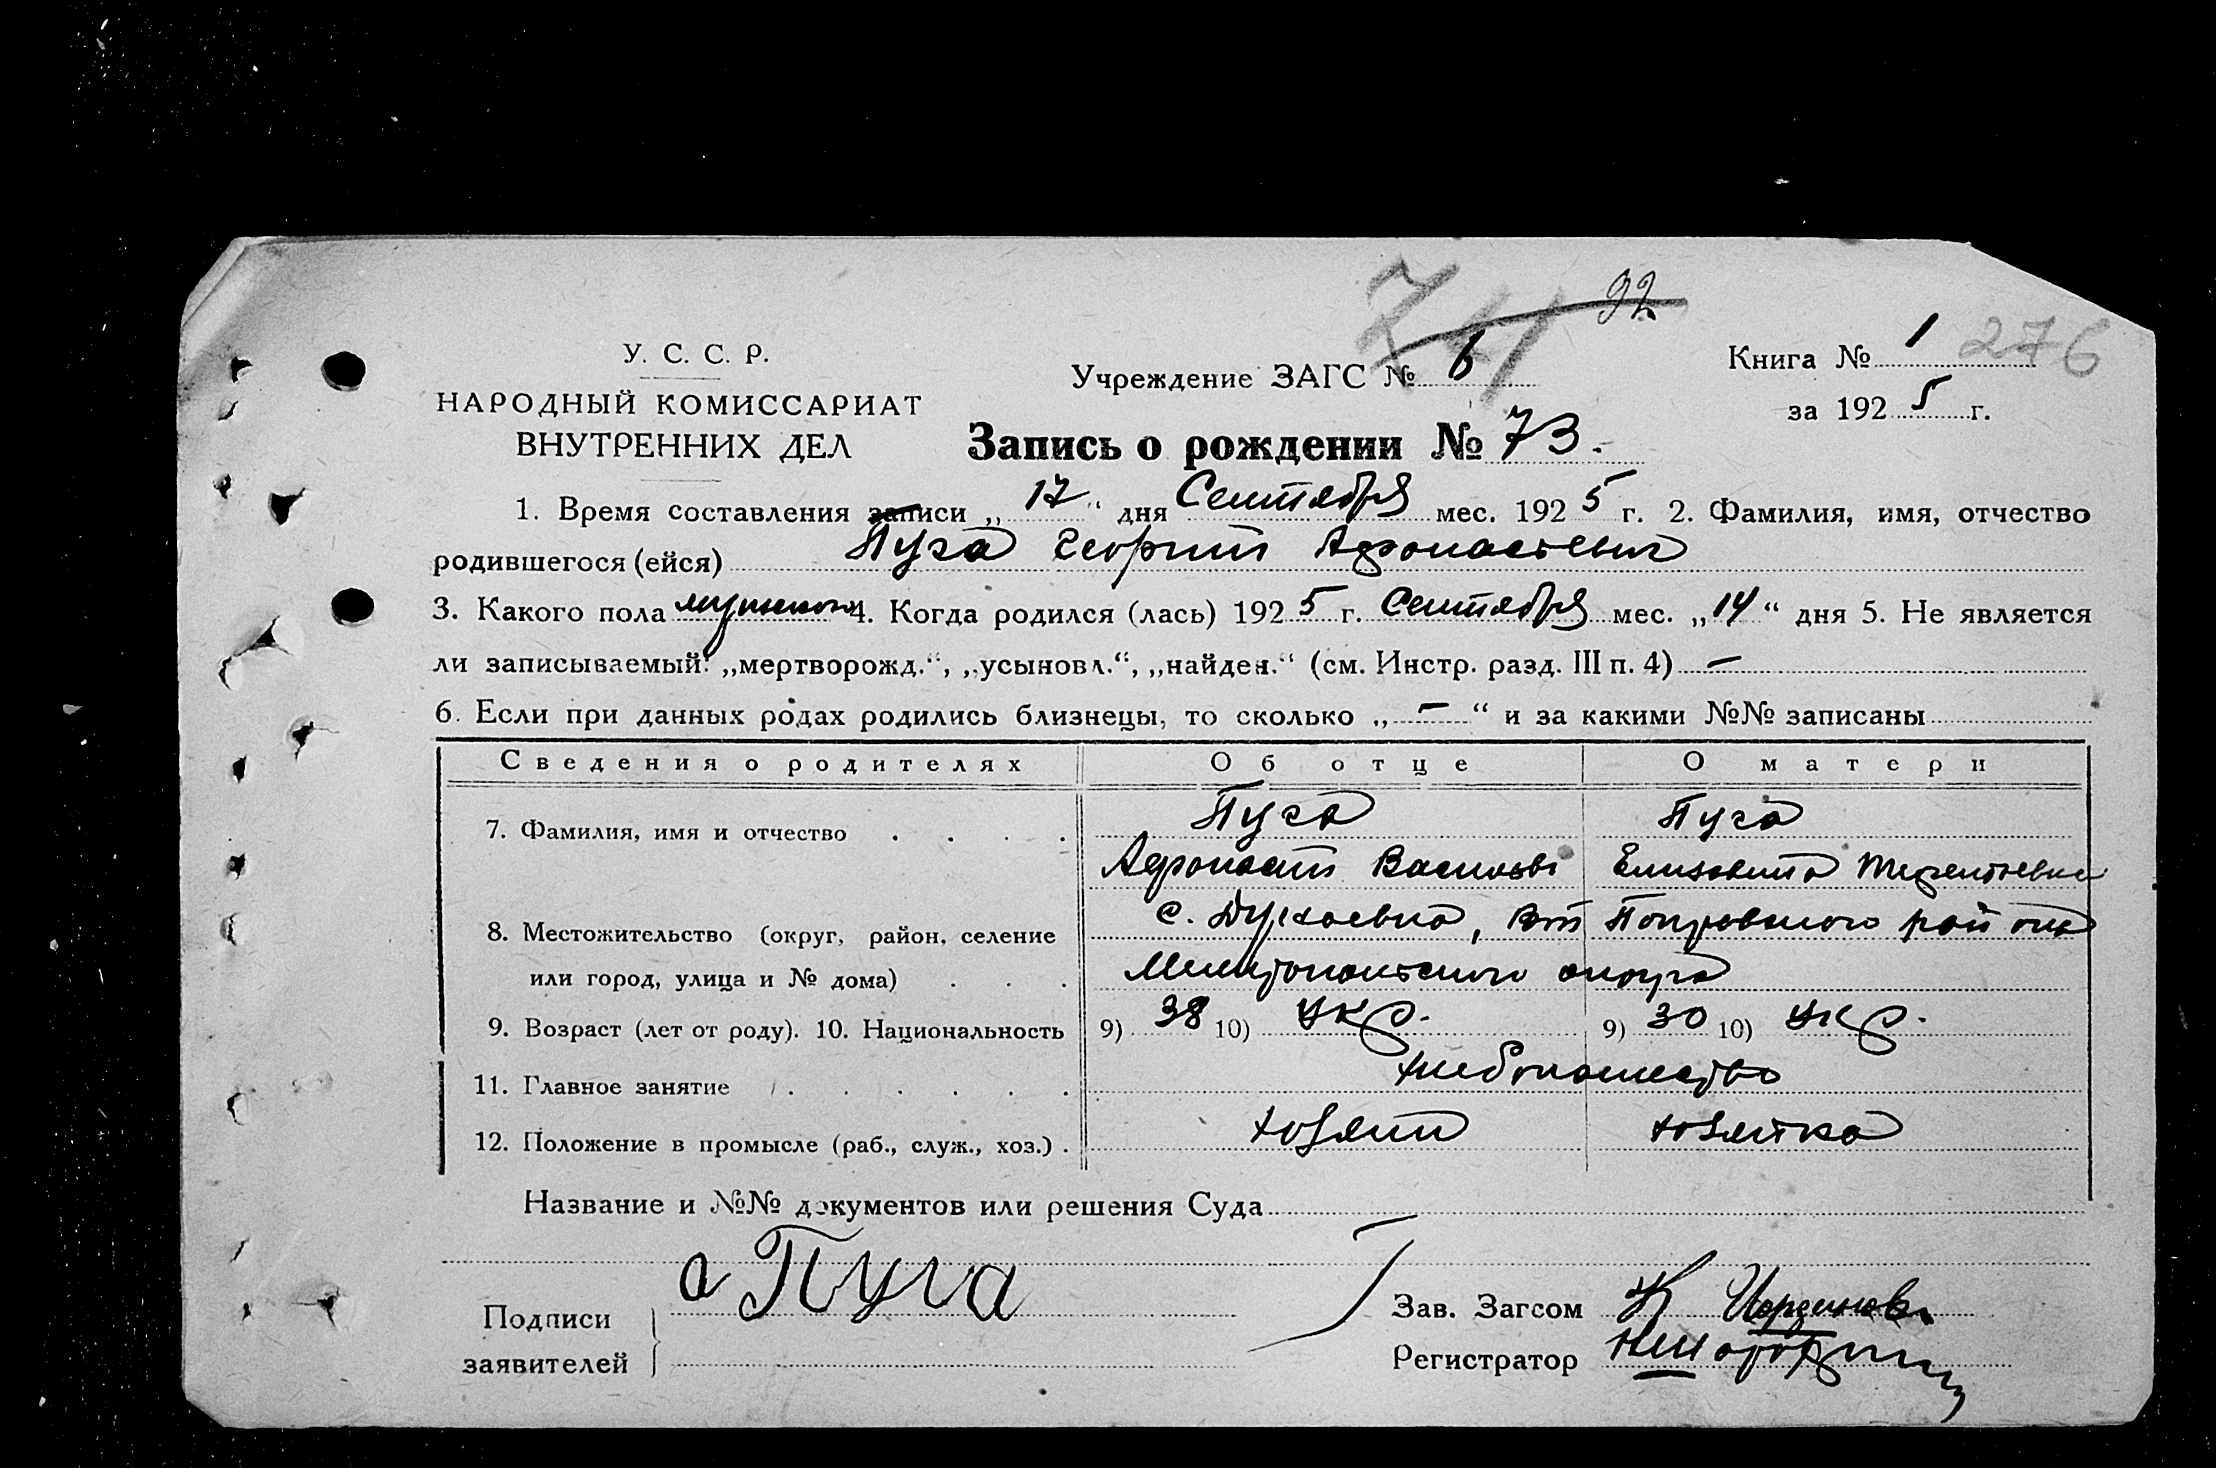 741 92
У. С. С. Р.
НАРОДНЫЙ КОМИССАРИАТ
ВНУТРЕННИХ ДЕЛ
Учреждение ЗАГС № 6
Книга № 1 276
за 1925 г.
Запись о рождении № 73.
1. Время составления записи „17“ дня Сентября мес. 1925 г. 2. Фамилия, имя, отчество
родившегося (ейся) Пуга Георгий Афонасьевич
3. Какого пола мужского 4. Когда родился (лась) 1925 г. Сентября мес. „14“ дня 5. Не является
ли записываемый: „мертворожд.“, „усыновл.“, „найден.“ (см. Инстр. разд. III п. 4) —
6. Если при данных родах родились близнецы, то сколько „—“ и за какими №№ записаны
Сведения о родителях Об отце О матери
7. Фамилия, имя и отчество Пуга Пуга
Афонасий Васильев Елизавета Терентьевна
8. Местожительство (округ, район, селение с. района
или город, улица и № дома) Мелитопольского округа
9. Возраст (лет от роду). 10. Национальность 9) 38 10) Укр. 9) 30 10) Укр.
11. Главное занятие хлебопашество
12. Положение в промысле (раб., служ., хоз.) хозяин хозяйка
Название и №№ документов или решения Суда
Подписи
заявителей
а Пуга
Зав. Загсом
Регистратор